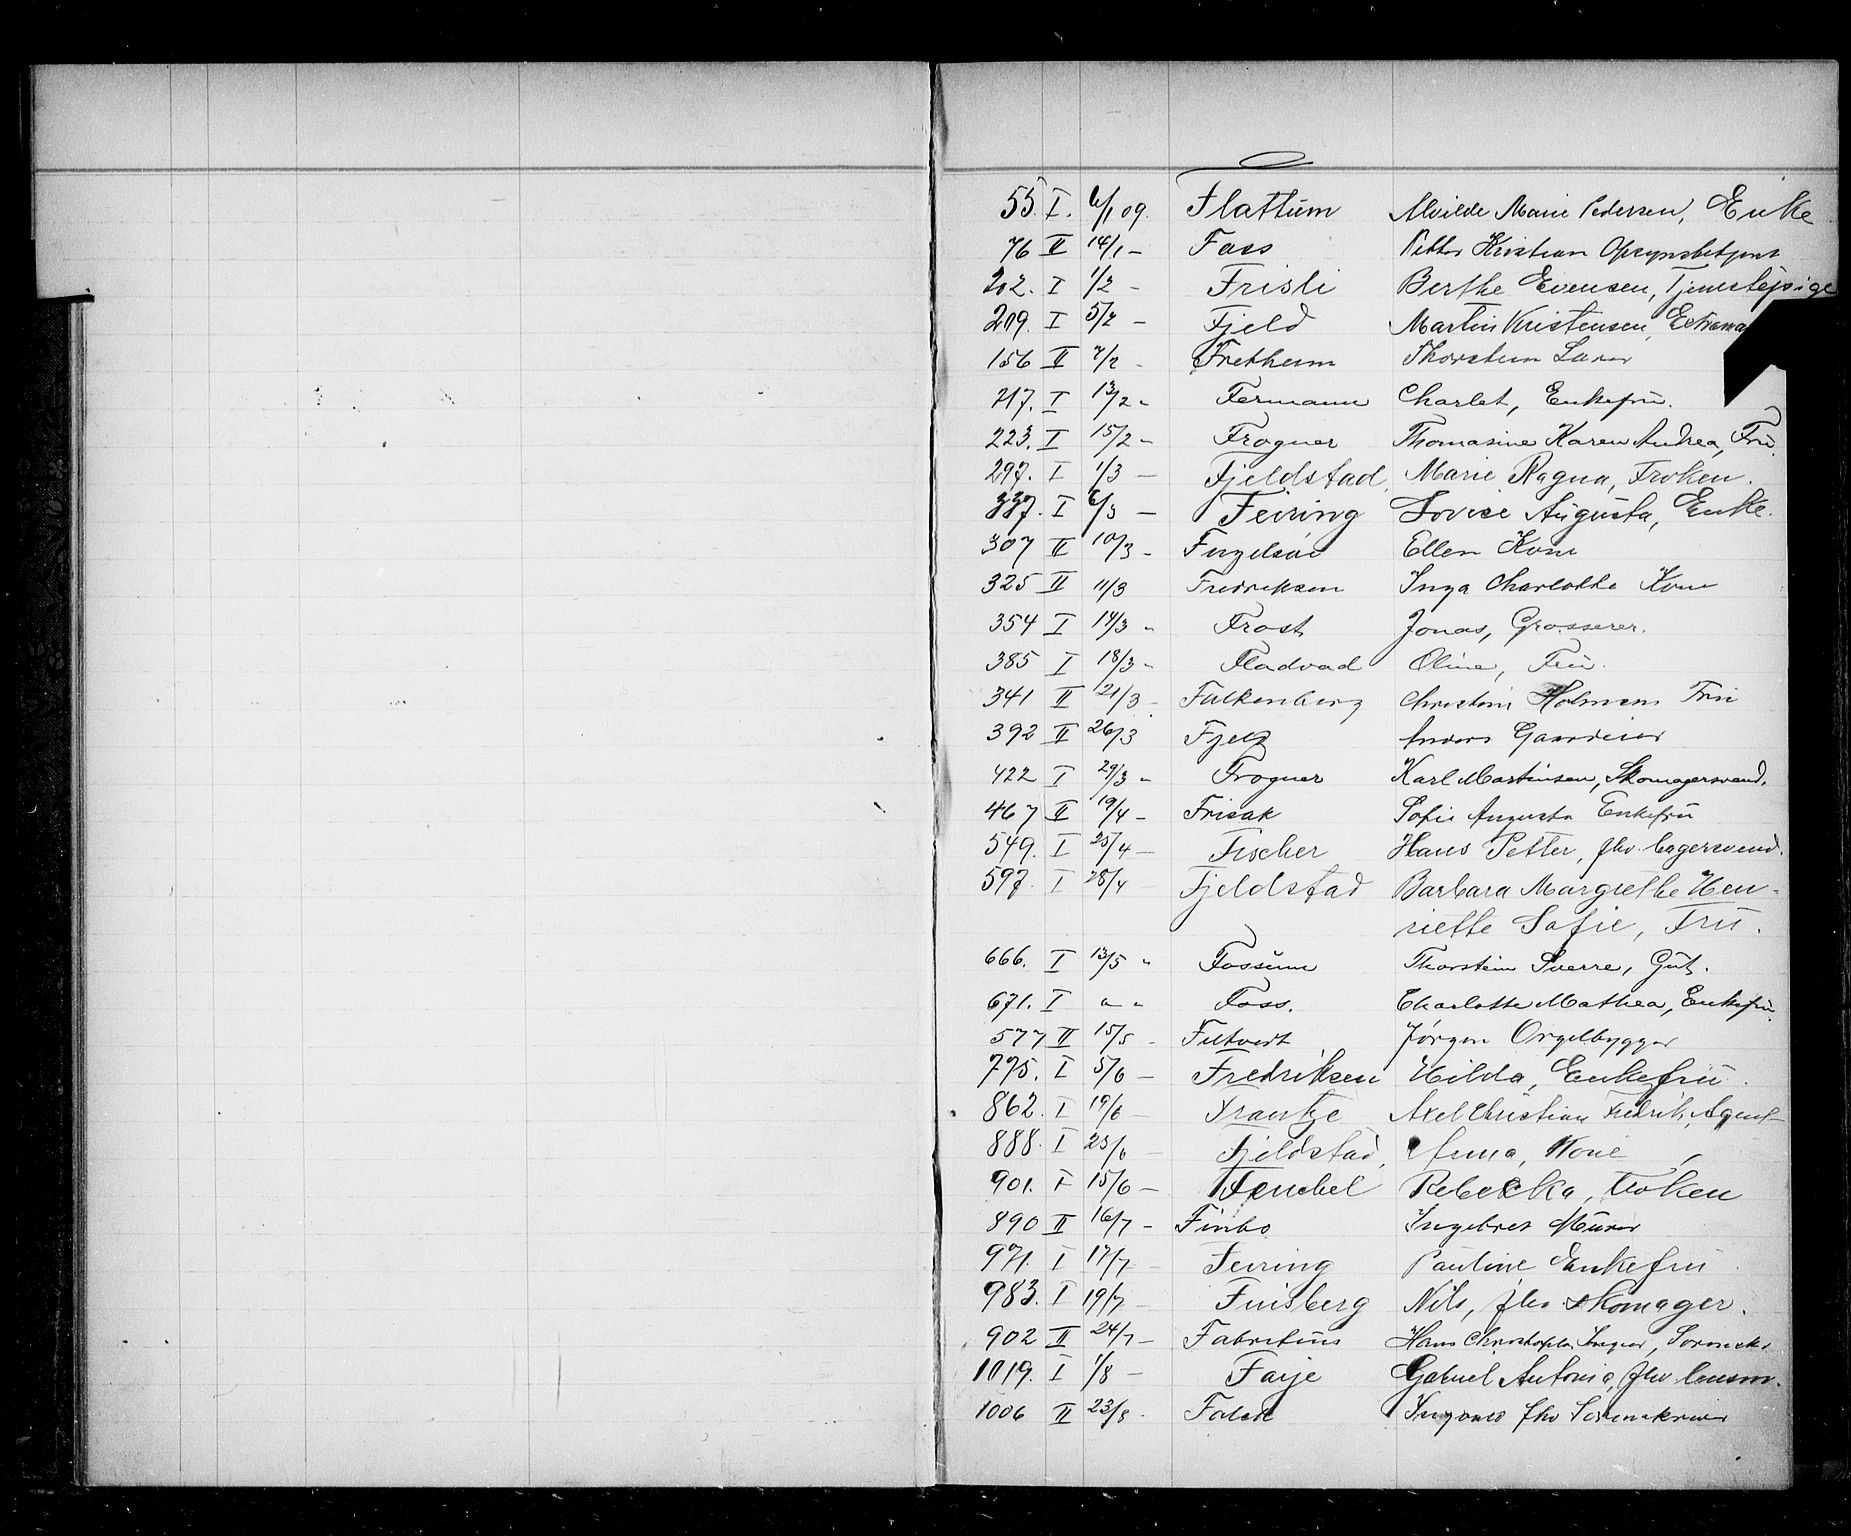 55. I. 6/1 09. Flattum Alvilde Marie Pedersen, Enke
76 II 14/1 - Foss Petter Kristian Opsynsbetjent
202. I 1/2 - Frisli Berthe Evensen, Tjenestepige
209. I 5/2 - Fjeld Martin Kristensen,
156 II 7/2 - Fretheim Thorstein
217. I 13/2 - Fermann Charlet, Enkefru.
223. I 15/2 - Frogner Thomasine Karen Andrea, Fru.
297. I 1/3 - Fjeldstad, Marie Ragna, Frøken.
337. I 6/3 - Feiring Lovise Augusta, Enke.
307 II 10/3 - Ellen Kone
325 II 11/3 Fredriksen Inga Charlotte Kone
354 I 14/3 - Frost Jonas, Grosserer.
385 I 18/3 - Fladvad Oline, Fru.
341 II 21/3 - Falkenberg Christine Holmsen Fru
392 II 26/3 Anders Gaardeier
422 I 29/3 - Frogner Karl Martinsen, Skomagersvend.
467 II 19/4 - Frisak Sofie Augusta Enkefru
549. I 25/4 - Fischer Hans Petter, fhv. bagersvend.
597. I 28/4 - Fjeldstad Barbara Margrethe Hen-
riette Sofie, Fru.
666. I 13/5 " Fossum Thorstein Sverre, Gut.
671. I " " Foss. Charlotte Mathea, Enkefru.
577 II 15/5 - Filtvedt Jørgen Orgelbygger
775. I 5/6 - Fredriksen Hilda, Enkefru.
862. I 19/6 - Frantze Axel Christian Fredrik, Agent
888. I 23/6 - Fjeldstad, Anna, Kone
901. I 15/6 - Fenchel Rebekka, Frøken
890 II 16/7 - Finbo Ingebret Murer
971. I 17/7 - Feiring Pauline Enkefru
983. I 19/7 - Finsberg Nils, fhv skomager.
902 II 24/7 - Fabritius Hans Christopher
1019. I 1/8 - Faye Gabriel Antonio, fhv lensm.
1006 II 23/8 - fhv Sorenskriver